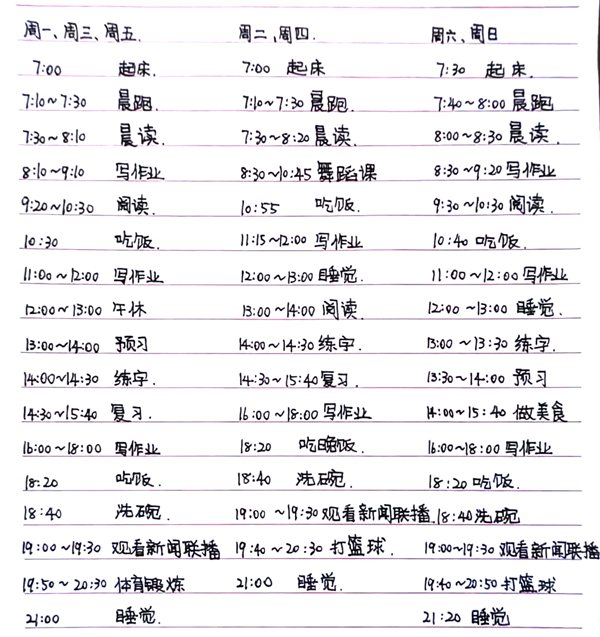 周一、周三、周五. 周二、周四. 周六、周日
7:00 起床. 7:00 起床. 7:30 起床.
7:10~7:30 晨跑 7:10~7:30 晨跑. 7:40~8:00 晨跑
7:30~8:10 晨读 7:30~8:20 晨读. 8:00~8:30 晨读.
8:10~9:10 写作业 8:30~10:45 舞蹈课 8:30~9:20 写作业
9:20~10:30 阅读. 10:55 吃饭. 9:30~10:30 阅读.
10:30 吃饭. 11:15~12:00 写作业 10:40 吃饭.
11:00~12:00 写作业 12:00~13:00 睡觉. 11:00~12:00 写作业
12:00~13:00 午休 13:00~14:00 阅读. 12:00~13:00 睡觉.
13:00~14:00 预习 14:00~14:30 练字. 13:00~13:30 练字.
14:00~14:30 练字. 14:30~15:40 复习. 13:30~14:00 预习
14:30~15:40 复习. 16:00~18:00 写作业 14:00~15:40 做美食
16:00~18:00 写作业 18:20 吃晚饭. 16:00~18:00 写作业
18:20 吃饭. 18:40 洗碗. 18:20 吃饭.
18:40 洗碗. 19:00~19:30 观看新闻联播. 18:40 洗碗
19:00~19:30 观看新闻联播 19:40~20:30 打篮球. 19:00~19:30 观看新闻联播
19:50~20:30 体育锻炼 21:00 睡觉. 19:40~20:50 打篮球
21:00 睡觉. 21:20 睡觉